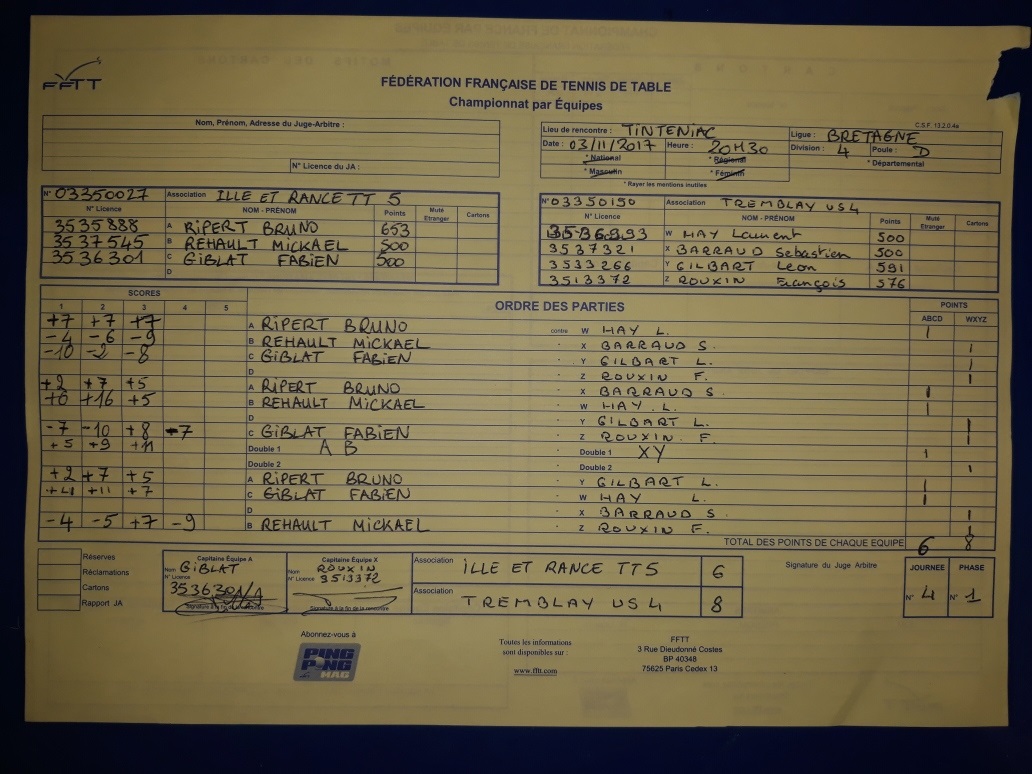 FFTT
FÉDÉRATION FRANÇAISE DE TENNIS DE TABLE
Championnat par Équipes
C.S.F. 13.2.0.4a
Nom, Prénom, Adresse du Juge-Arbitre :
N° Licence du JA :
Lieu de rencontre : TINTENIAC Ligue : BRETAGNE
Date : 03/11/2017 Heure : 20H30 Division : 4 Poule : D
* National * Régional * Départemental
* Masculin * Féminin
* Rayer les mentions inutiles
N° 03350027 Association ILLE ET RANCE TT 5
N° Licence NOM - PRÉNOM Points Muté Etranger Cartons
3535888 A RIPERT BRUNO 653
3537545 B REHAULT MICKAEL 500
3536301 C GIBLAT FABIEN 500
D
N° 03350150 Association TREMBLAY US 4
N° Licence NOM - PRÉNOM Points Muté Etranger Cartons
W HAY Laurent 500
3537321 X BARRAUD Sebastien 500
3533266 Y GILBART Leon 591
3513372 Z ROUXIN François 576
SCORES ORDRE DES PARTIES POINTS
1 2 3 4 5 ABCD WXYZ
+7 +7 +7 A RIPERT BRUNO contre W HAY L. 1
-4 -6 -9 B REHAULT MICKAEL - X BARRAUD S. 1
-10 -2 -8 C GIBLAT FABIEN - Y GILBART L. 1
D - Z ROUXIN F. 1
+2 +7 +5 A RIPERT BRUNO - X BARRAUD S 1
+6 +16 +5 B REHAULT MICKAEL - W HAY. L. 1
D - Y GILBART L. 1
-7 -10 +8 -7 C GIBLAT FABIEN - Z ROUXIN F. 1
+5 +9 +11 Double 1 A B - Double 1 XY 1
Double 2 - Double 2 1
+2 +7 +5 A RIPERT BRUNO - Y GILBART L. 1
+11 +7 C GIBLAT FABIEN - W HAY L. 1
D - X BARRAUD S 1
-4 -5 +7 -9 B REHAULT MICKAEL - Z ROUXIN F. 1
TOTAL DES POINTS DE CHAQUE EQUIPE 6 8
Réserves
Réclamations
Cartons
Rapport JA
Capitaine Équipe A
Nom GIBLAT
N° Licence
Signature à la fin de la rencontre
Capitaine Équipe X
Nom ROUXIN
N° Licence 3513372
Signature à la fin de la rencontre
Association ILLE ET RANCE TT5 6
Association TREMBLAY US 4 8
Signature du Juge Arbitre
JOURNÉE PHASE
N° 4 N° 1
Abonnez-vous à
PING PONG MAG
Toutes les informations
sont disponibles sur :
www.fftt.com
FFTT
3 Rue Dieudonné Costes
BP 40348
75625 Paris Cedex 13